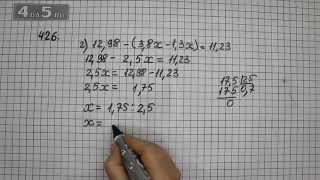 4 на 5.ru
426.
2) 12,98 - (3,8x - 1,3x) = 11,23
12,98 - 2,5x = 11,23
2,5x = 12,98 - 11,23
2,5x = 1,75
x = 1,75 : 2,5
x =
17,5 | 25
175 | 0,7
0